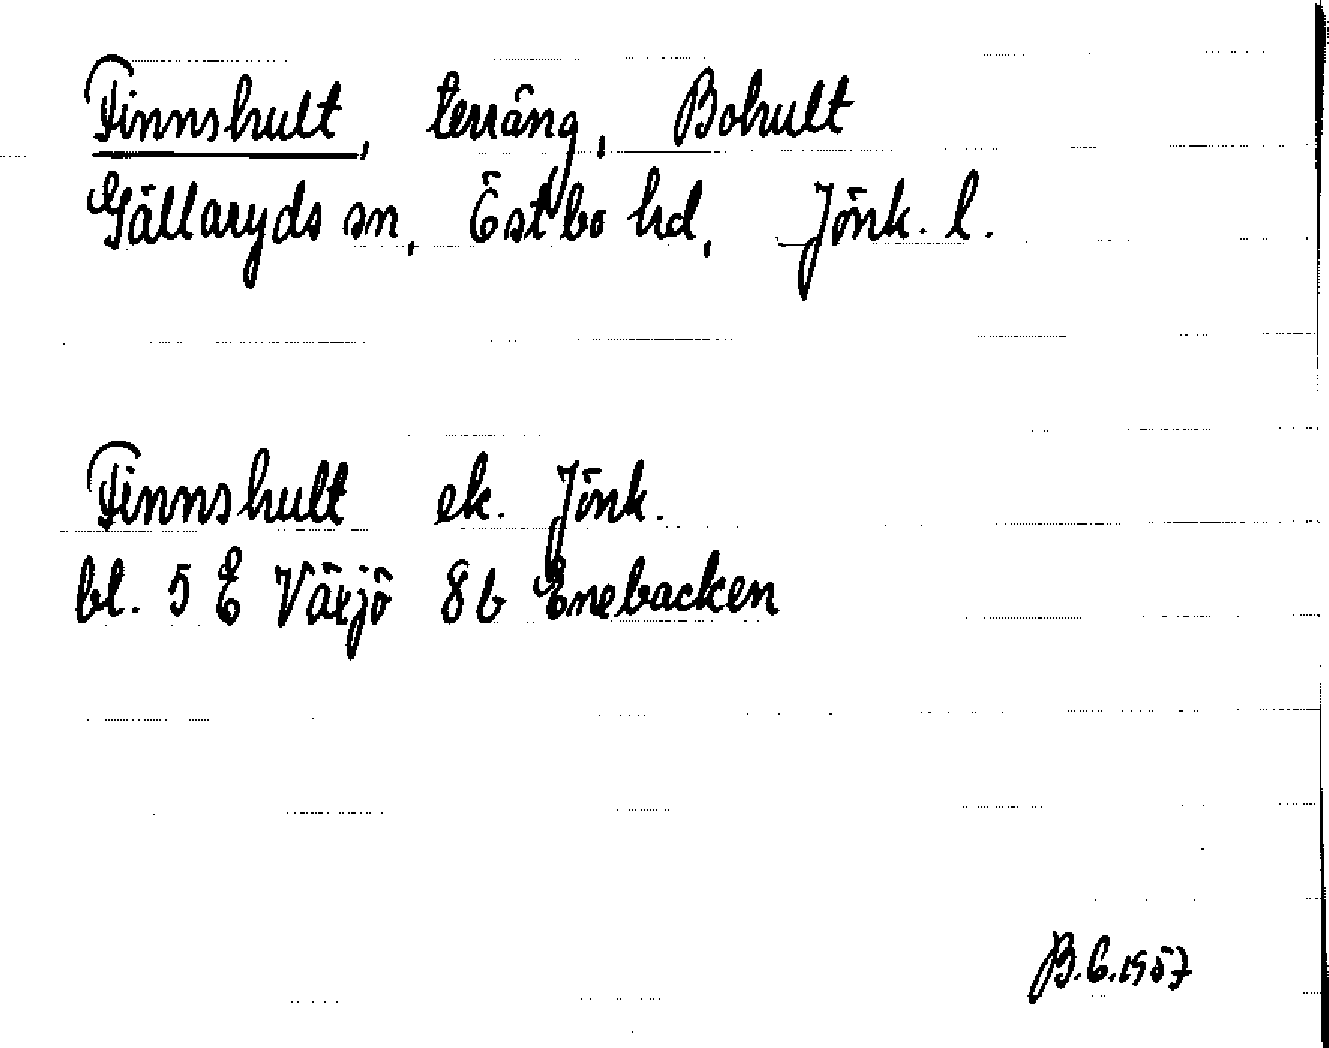 Finnshult, terräng, Bohult
Gällaryds sn, Östbo hd, Jönk. l.
Finnshult ek. Jönk.
bl. 5 E Växjö 8 b Enebacken
B.G. 1957